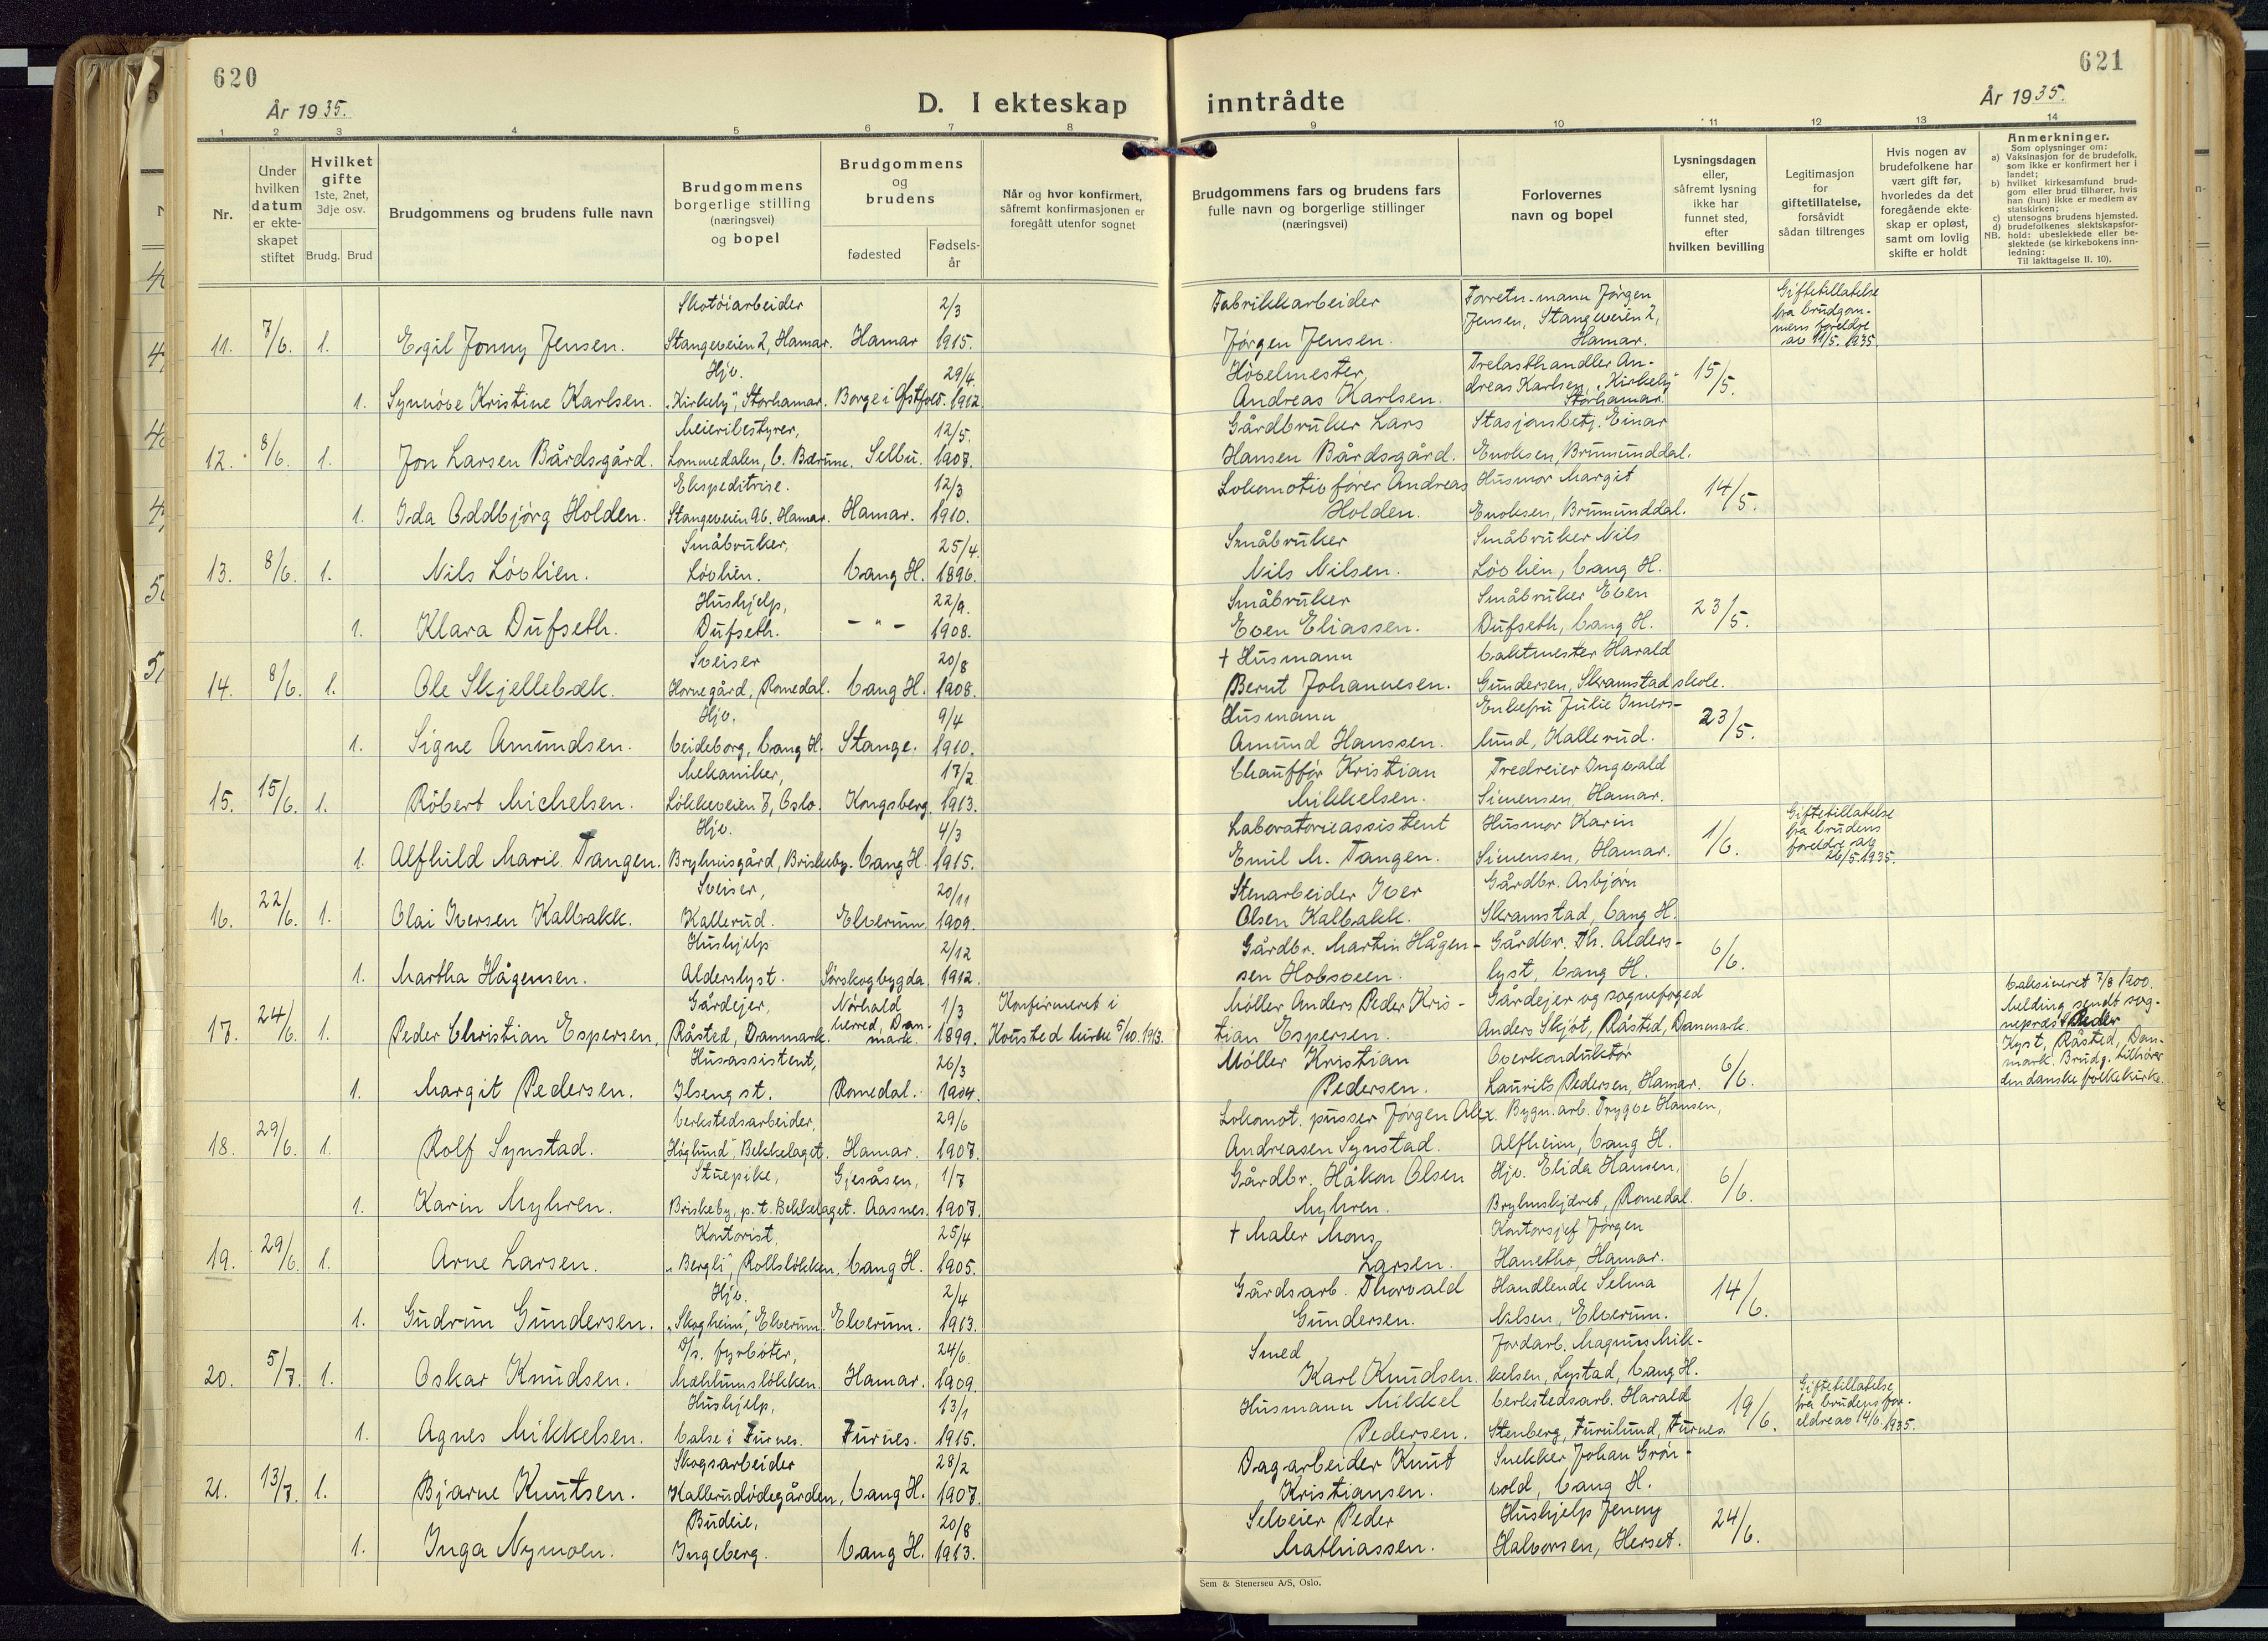 620
År 1935.
D. I ekteskap
1 2 3 4 5 6 7 8
Nr.
Under hvilken datum er ekte-skapet stiftet
Hvilket gifte 1ste, 2net, 3dje osv.
Brudg. Brud
Brudgommens og brudens fulle navn
Brudgommens borgerlige stilling (næringsvei) og bopel
Brudgommens og brudens
fødested
Fødsels-år
Når og hvor konfirmert, såfremt konfirmasjonen er foregått utenfor sognet
Skotöiarbeider 2/3
11. 7/6. 1. Egil Jonny Jensen. Stangeveien 2, Hamar. Hamar 1915.
Hjv. 29/4.
1. Synnöve Kristine Karlsen. "Kirkely", Storhamar. Borge i Østfold. 1912.
Meieribestyrer, 12/5.
12. 8/6. 1. Jon Larsen Bårdsgård. Lommedalen, V. Bærum. Selbu. 1907.
Ekspeditrise. 12/3
1. Ida Oddbjörg Holden. Stangeveien 96. Hamar. Hamar. 1910.
Småbruker, 25/4.
13. 8/6. 1. Nils Lövlien. Lövlien. Vang H. 1896.
Hushjelp, 22/9.
1. Klara Dufseth. Dufseth. - " - 1908.
Sveiser 20/8
14. 8/6. 1. Ole Skjellebæk. Hornegård, Romedal. Vang H. 1908.
Hjv. 9/4
1. Signe Amundsen. Veideborg, Vang H. Stange. 1910.
Mekaniker, 17/2
15. 15/6. 1. Robert Michelsen. Lökkeveien 7, Oslo. Kongsberg. 1913.
Hjv. 4/3
1. Alfhild Marie Tangen. Brylmisgård, Briskeby. Vang H. 1915.
Sveiser, 20/11
16. 22/6. 1. Olai Iversen Kalbakk. Kallerud. Elverum. 1909.
Hushjelp 2/12
1. Martha Hågensen. Alderslyst. Sørskogbygda 1912.
Gårdejer, Nørhald 1/3 Konfirmeret i
17. 24/6. 1. Peder Christian Espersen, Råsted, Danmark. herred, Danmark. 1899. Kousted kirke 5/10. 1913.
Husassistent, 26/3
1. Margit Pedersen. Ilseng st. Romedal. 1904.
Verkstedsarbeider, 29/6
18. 29/6. 1. Rolf Synstad. "Höglund", Bekkelaget. Hamar. 1907.
Stuepike, Gjesåsen, 1/7
1. Karin Myhren. Briskeby, p. t. Bekkelaget. Aasnes. 1907.
Kontorist, 25/4
19. 29/6. 1. Arne Larsen. "Bergli", Rollslökken, Vang H. 1905.
Hjv. 2/4
1. Gudrun Gundersen. "Skogheim", Elverum. Elverum. 1913.
D/s. fyrböter, 24/6.
20. 5/7. 1. Oskar Knudsen. Mæhlumslökken. Hamar. 1909.
Hushjelp, 13/1
1. Agnes Mikkelsen. Valse i Furnes. Furnes. 1915.
Skogsarbeider 28/2
21. 13/7. 1. Bjarne Knutsen. Kallerudödegården, Vang H. 1907.
Budeie, 20/8
1. Inga Nymoen. Ingeberg. Vang H. 1913.
621
År 1935.
inntrådte
9 10 11 12 13 14
Brudgommens fars og brudens fars fulle navn og borgerlige stillinger (næringsvei)
Forlovernes navn og bopel
Lysningsdagen eller, såfremt lysning ikke har funnet sted, efter hvilken bevilling
Legitimasjon for giftetillatelse, forsåvidt sådan tiltrenges
Hvis nogen av brudefolkene har vært gift før, hvorledes da det foregående ekte-skap er opløst, samt om lovlig skifte er holdt
Anmerkninger.
Som oplysninger om:
a) Vaksinasjon for de brudefolk, som ikke er konfirmert her i landet;
b) hvilket kirkesamfund brud-gom eller brud tilhører, hvis han (hun) ikke er medlem av statskirken;
c) utensogns brudens hjemsted.
d) brudefolkenes slektskapsfor-hold: ubeslektede eller be-slektede (se kirkebokens inn-ledning:
NB.
Til iakttagelse II. 10).
Fabrikkarbeider Forretn.-mann Jörgen Giftetillatelse
Jensen, Stangeveien 2, fra brudgom-
Jörgen Jensen. Hamar. mens foreldre av 11/5. 1935.
Hövelmester Trelasthandler An-
Andreas Karlsen. dreas Karlsen, "Kirkely" Storhamar. 15/5.
Gårdbruker Lars Stasjonsbetj. Einar
Hansen Bårdsgård. Enoksen, Brumunddal.
Lokomotivförer Andreas Husmor Margit
Holden. Enoksen, Brumunddal. 14/5.
Småbruker Småbruker Nils
Nils Nilsen. Lövlien, Vang H.
Småbruker Småbruker Even
Even Eliassen. Dufseth, Vang H. 23/5.
† Husmann Vaktmester Harald
Bernt Johannesen. Gundersen, Skramstad skole.
Husmann Enkefru Julie Imers-
Amund Hanssen. lund, Kallerud. 23/5.
Chaufför Kristian Tredreier Ingvald
Mikkelsen. Simensen, Hamar.
Laboratorieassistent Husmor Karin Giftetillatelse fra brudens
Emil M. Tangen. Simensen, Hamar. 1/6. foreldre av 26/5. 1935.
Stenarbeider Iver Gårdbr. Asbjörn
Olsen Kalbakk. Skramstad, Vang H.
Gårdbr. Martin Hågen- Gårdbr. Th. Alders-
sen Hobsveen. lyst, Vang H. 6/6.
Møller Anders Peder Kris- Gårdejer og sognefoged
tian Espersen. Anders Skjöt, Råsted, Danmark.
Vaksineret 7/8 1900. Melding sendt sog-nepræst Peder Kyst, Råsted, Dan-mark. Brudg. tilhører den danske folkekirke.
Møller Kristian Overkonduktör
Pedersen. Laurits Pedersen, Hamar. 6/6.
Lokomot. pusser Jörgen Alex. Bygn. arb. Trygve Hansen,
Andreasen Synstad. Alfheim, Vang H.
Gårdbr. Håkon Olsen Hjv. Elida Hansen,
Myhren. Brylmskjæret, Romedal. 6/6.
† Maler Mons Kontorsjef Jörgen
Larsen. Hanetho, Hamar.
Gårdsarb. Thorvald Handlende Selma
Gundersen. Nilsen, Elverum. 14/6.
Smed Jordarb. Magnus Mik-
Karl Knudsen. kelsen, Lystad, Vang H.
Husmann Mikkel Verkstedsarb. Harald Giftetillatelse fra brudens for-
Pedersen. Stenberg, Furulund, Furnes. 19/6. eldre av 14/6. 1935.
Dagarbeider Knut Snekker Johan Grön-
Kristiansen. vold, Vang H.
Selveier Peder Hushjelp Jenny
Mathiassen. Halvorsen, Herset. 24/6.
Sem & Stenersen A/S, Oslo.